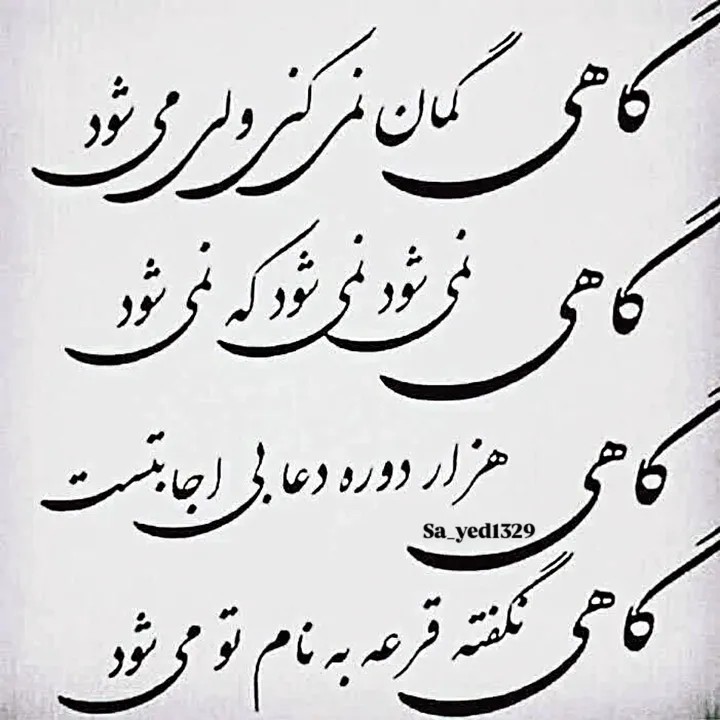 گاهی گمان نمی کنی ولی می شود
گاهی نمی شود نمی شود که نمی شود
گاهی هزار دوره دعا بی اجابتست
Sa_yed1329
گاهی نگفته قرعه به نام تو می شود